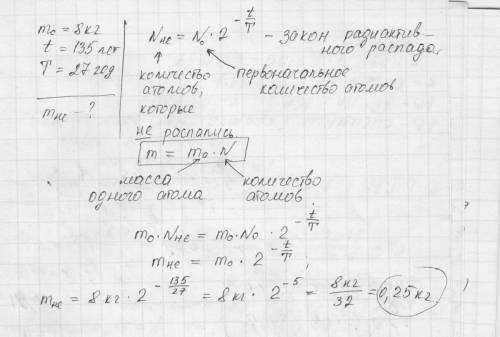 m₀ = 8 кг
t = 135 лет
T = 27 год
m не - ?
N не = N₀ · 2^(-t/T) - закон радиактив-
ного распада.
количство
атомов,
которые
не распались.
первоначальное
количство атомов
m = m₀ · N
масса
одного атома
количство
атомов
m₀ · N не = m₀ · N₀ · 2^(-t/T)
m не = m₀ · 2^(-t/T)
m не = 8 кг · 2^(-135/27) = 8 кг · 2^(-5) = 8 кг/32 = 0,25 кг.